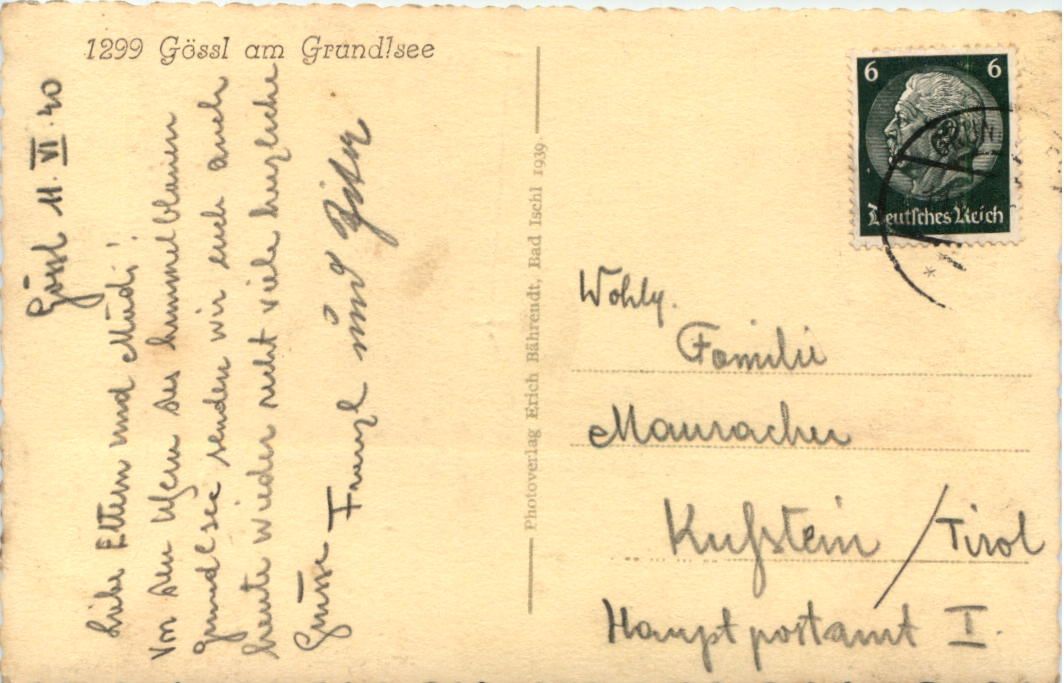 1299 Gössl am Grundlsee
Gössl 11. VI. 40
Liebe Eltern und Mudi!
Von den Ufern des himmelblauen
Grundlsee senden wir euch auch
heute wieder recht viele herzliche
Grüsse Franzl und
Photoverlag Erich Bährendt, Bad Ischl 1939.
6 6
Deutsches Reich
GRUN
Wohlg.
Familie
Mauracher
Kufstein / Tirol
Hauptpostamt I.